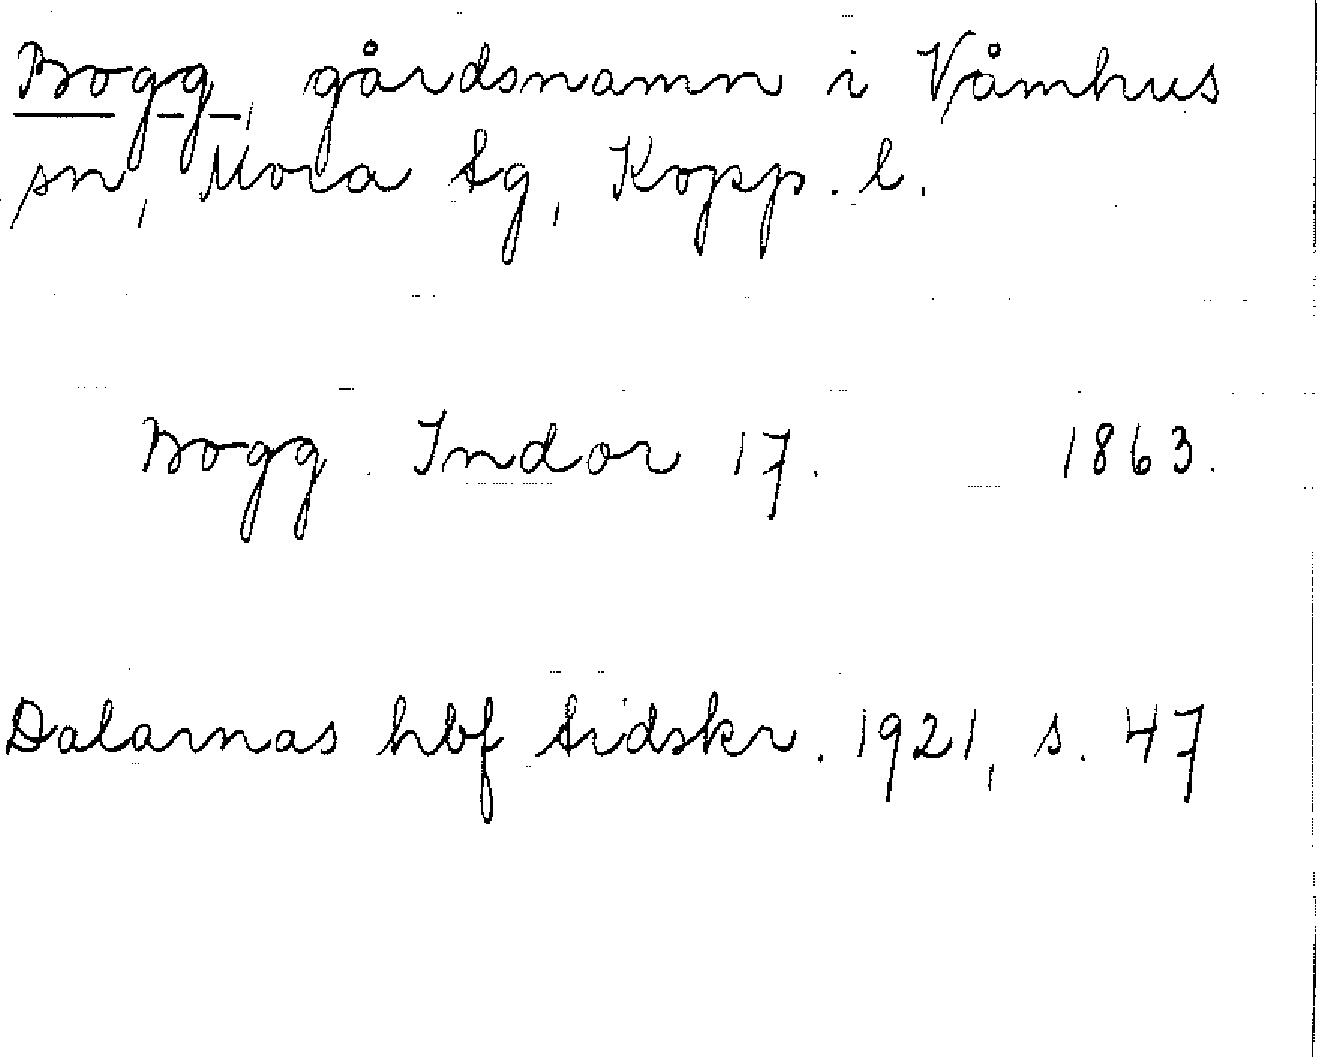 Bogg, gårdsnamn i Våmhus
sn, Mora tg, Kopp. l.
Bogg. Indor 17. 1863.
Dalarnas hbf tidskr. 1921, s. 47